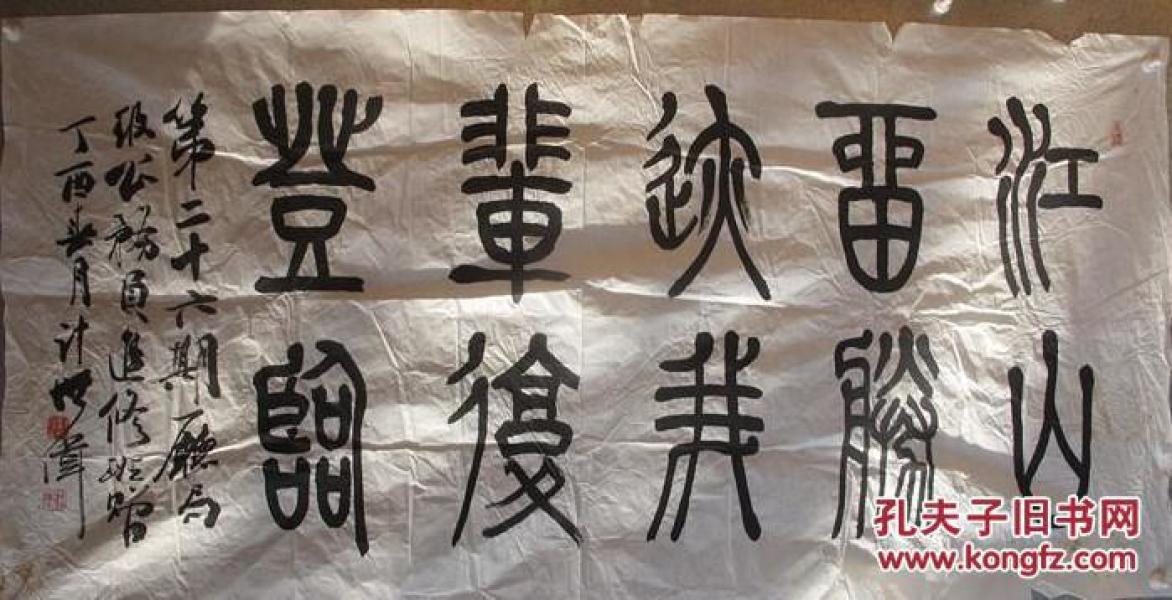 江山
留勝
迹我
輩復
登臨
第二十六期厅局
级公務員進修班贈
丁酉春月計
孔夫子旧书网
www.kongfz.com